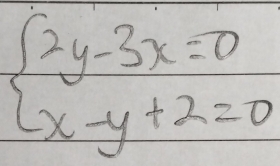 2y-3x=0
x-y+2=0